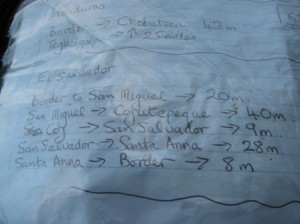 Honduras
Border → Choluteca 42m
→ 25 miles
El Salvador
border to San Miguel → 20m
San Miguel → Cojutepeque → 40m
Coj → San Salvador → 9m
San Salvador → Santa Anna → 28m
Santa Anna → Border → 8m